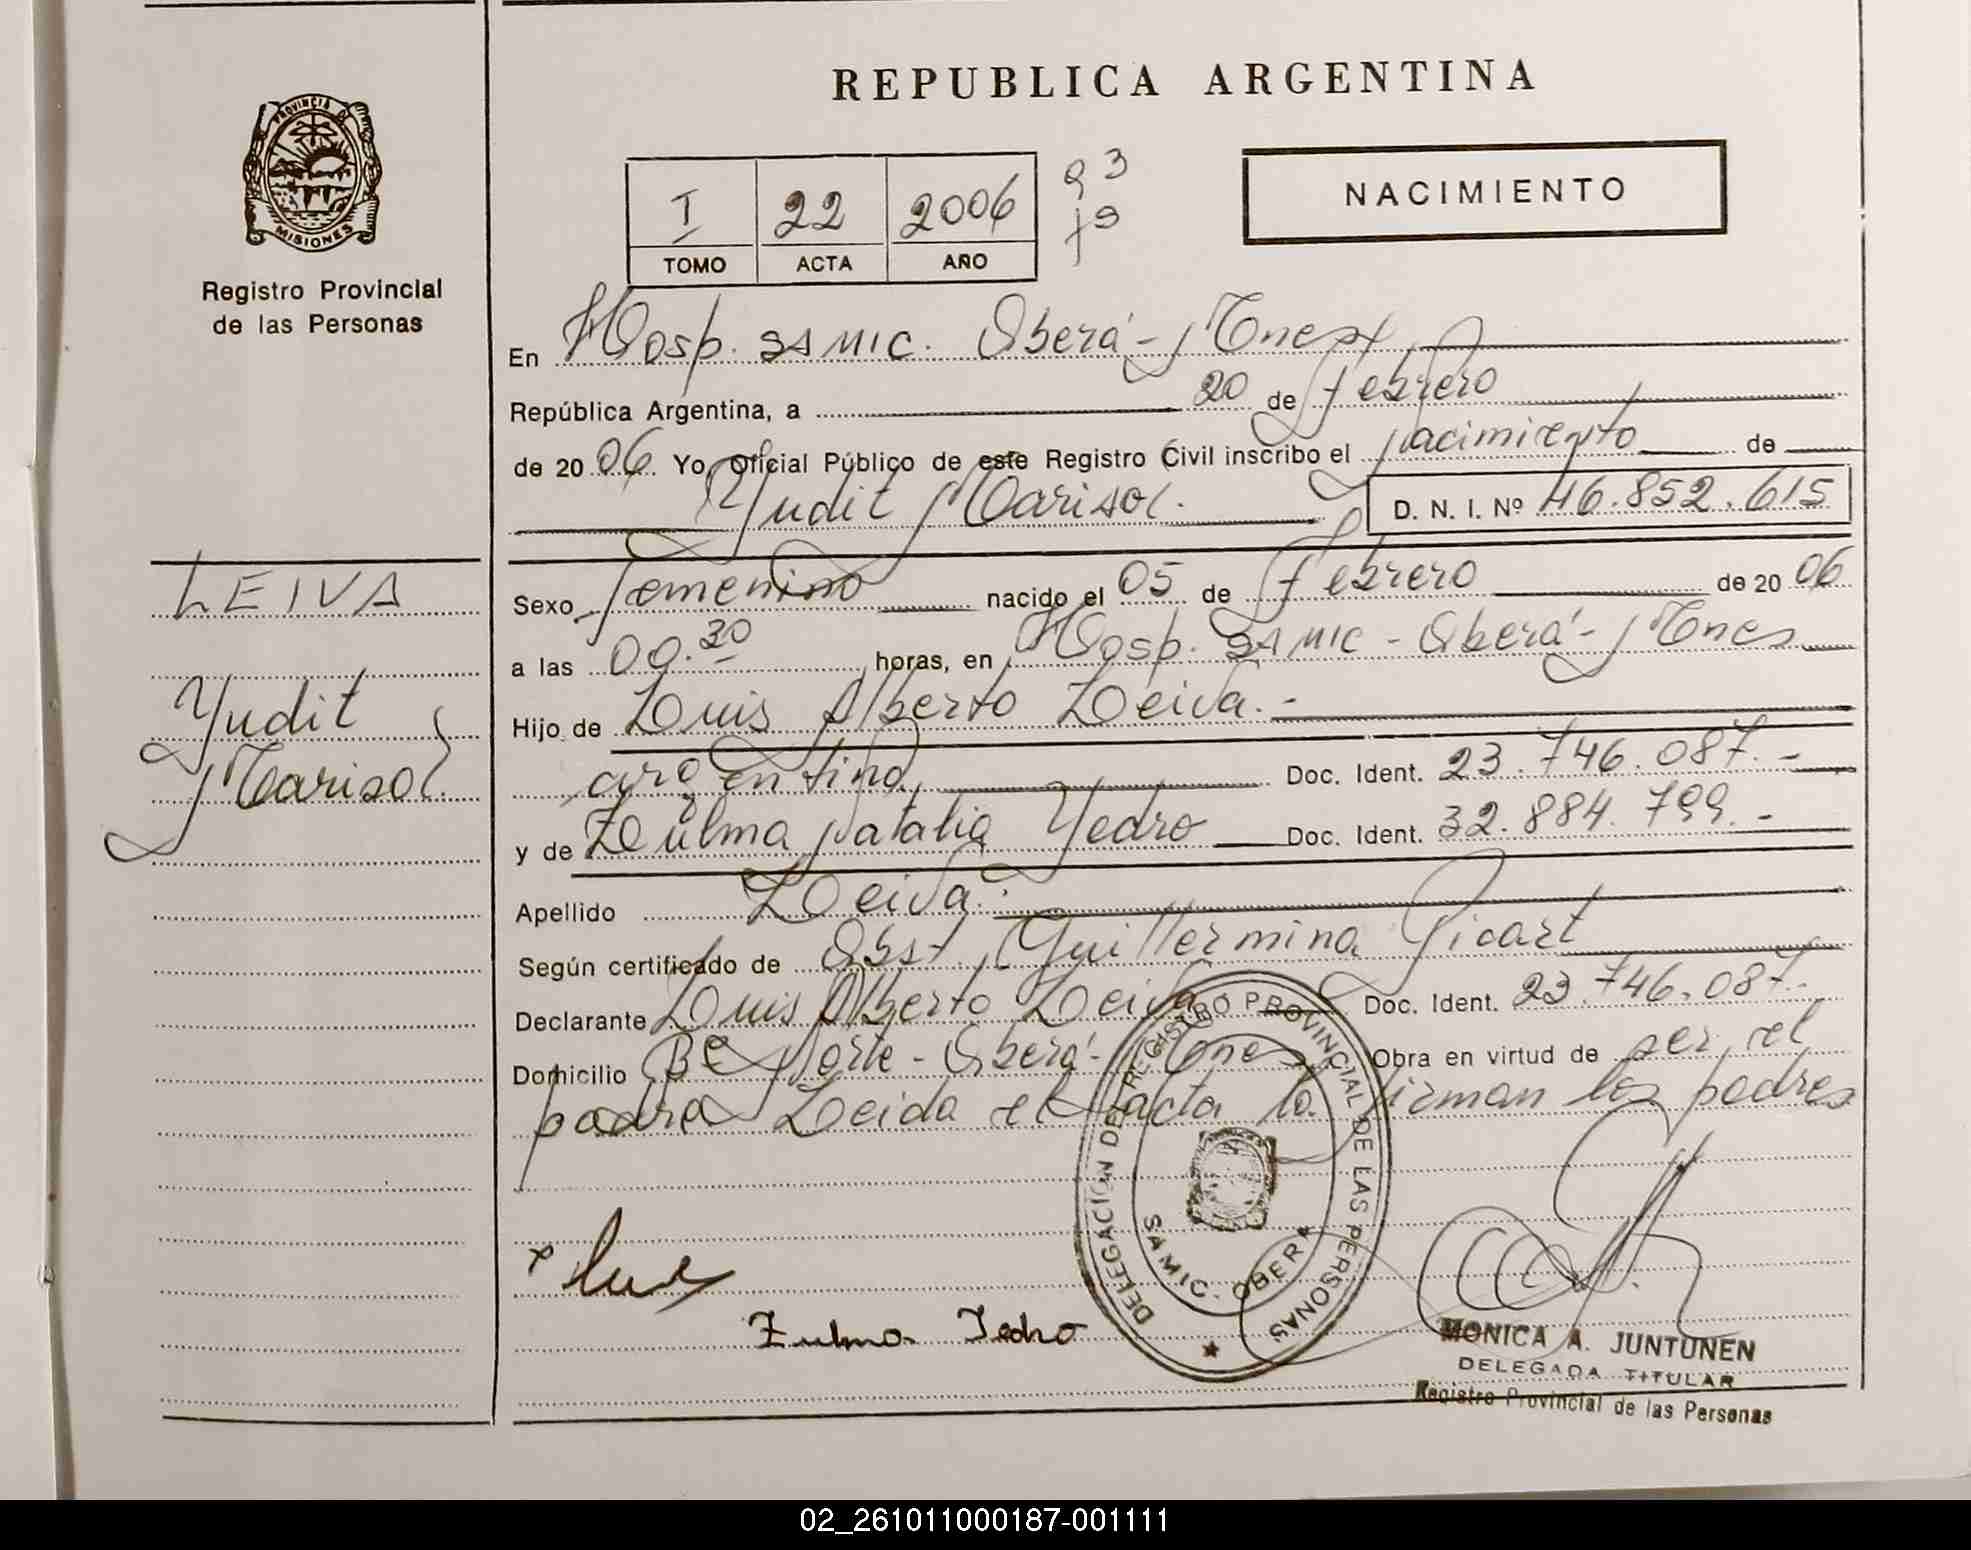 REPUBLICA ARGENTINA
PROVINCIA DE
MISIONES
Registro Provincial
de las Personas
I 22 2006
TOMO ACTA AÑO
NACIMIENTO
En Hosp. SAMIC. Oberá - Mnes
República Argentina, a 20 de Febrero
de 20 06 Yo, Oficial Público de este Registro Civil inscribo el nacimiento de
Yudit Marisol. D. N. I. Nº 46.852.615
LEIVA
Yudit
Marisol
Sexo femenino nacido el 05 de Febrero de 20 06
a las 00.30 horas, en Hosp. SAMIC - Oberá - Mnes
Hijo de Luis Alberto Leiva.-
argentina Doc. Ident. 23.746.087.-
y de Zulma Natalia Yedro Doc. Ident. 32.884.799.-
Apellido Leiva.
Según certificado de Obst. Guillermina Picart
Declarante Luis Alberto Leiva Doc. Ident. 23.746.087.
Domicilio Bº Norte - Oberá - Mnes Obra en virtud de ser el
padre Leida el acta la firman los padres
DELEGACION DEL REGISTRO PROVINCIAL DE LAS PERSONAS
SAMIC - OBERA
Zulma Yedro
MONICA A. JUNTUNEN
DELEGADA TITULAR
Registro Provincial de las Personas
02_261011000187-001111